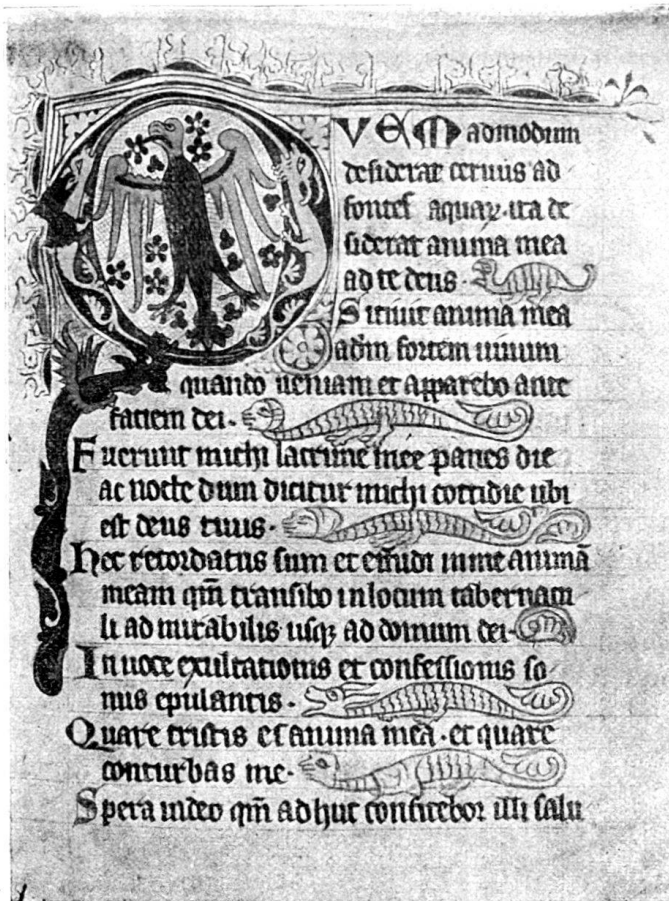 QVEM admodum
desiderat cervus ad
fontes aquaꝝ · ita de
siderat anima mea
ad te deus ·
Sitivit anima mea
ad dm̄ fortem uiuum
quando ueniam et apparebo ante
faciem dei ·
Fuerunt michi lacrime mee panes die
ac nocte dum dicitur michi cottidie ubi
est deus tuus ·
Hec recordatus sum et effudi in me animā
meam qm̄ transibo in locum tabernacu
li admirabilis usqꝫ ad domum dei ·
In uoce exultationis et confessionis so
nus epulantis ·
Quare tristis es anima mea · et quare
conturbas me ·
Spera in deo qm̄ adhuc confitebor illi salu